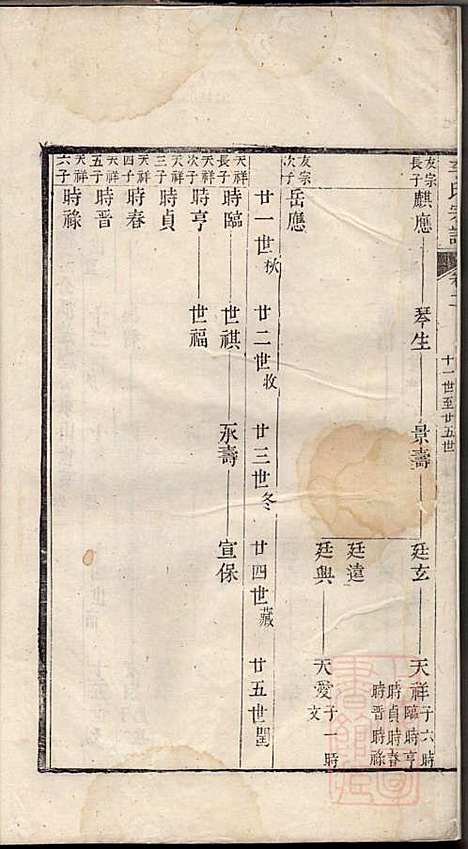 李氏宗譜 卷二 十一世至廿五世
友宗長子 麒應 琴生 景壽 廷玄 天祥 子六 時臨 時亨 時貞 時春 時晋 時祿
廷遠
廷興 天愛 子一 時文
友宗次子 岳應
廿一世 秋 廿二世 收 廿三世 冬 廿四世 藏 廿五世 閏
天祥長子 時臨 世祺 永壽 宣保
天祥次子 時亨 世福
天祥三子 時貞
天祥四子 時春
天祥五子 時晋
天祥六子 時祿